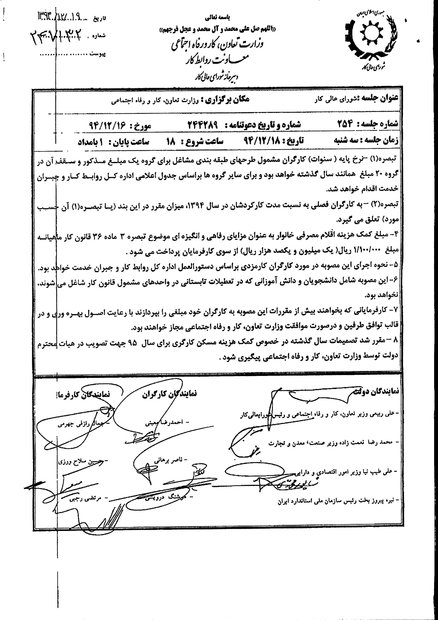 باسمه تعالی
«اللهم صل علی محمد و آل محمد و عجل فرجهم»
وزارت تعاون، کار و رفاه اجتماعی
معاونت روابط کار
دبیرخانه شورای عالی کار
شورای عالی کار
تاریخ
شماره
پیوست
عنوان جلسه : شورای عالی کار
مکان برگزاری : وزارت تعاون، کار و رفاه اجتماعی
شماره جلسه : ۲۵۴
شماره و تاریخ دعوتنامه : ۲۴۴۲۸۹
مورخ : ۹۴/۱۲/۱۶
زمان جلسه : سه شنبه ۹۴/۱۲/۱۸
ساعت شروع : ۱۸
ساعت پایان : ۱ بامداد
تبصره(۱) -نرخ پایه (سنوات) کارگران مشمول طرحهای طبقه بندی مشاغل برای گروه یک مبلغ مذکور و سقف آن در
گروه ۲۰ مبلغ همانند سال گذشته خواهد بود و برای سایر گروه ها براساس جدول اعلامی اداره کل روابط کار و جبران
خدمت اقدام خواهد شد.
تبصره(۲) -به کارگران فصلی به نسبت مدت کارکردشان در سال ۱۳۹۴، میزان مقرر در این بند (یا تبصره(۱) آن حسب
مورد) تعلق می گیرد.
۴- مبلغ کمک هزینه اقلام مصرفی خانوار به عنوان مزایای رفاهی و انگیزه ای موضوع تبصره ۳ ماده ۳۶ قانون کار ماهیانه
مبلغ ۱/۱۰۰/۰۰۰ ریال( یک میلیون و یکصد هزار ریال) از سوی کارفرمایان پرداخت می شود .
۵- نحوه اجرای این مصوبه در مورد کارگران کارمزدی براساس دستورالعمل اداره کل روابط کار و جبران خدمت خواهد بود.
۶- این مصوبه شامل دانشجویان و دانش آموزانی که در تعطیلات تابستانی در واحدهای مشمول قانون کار شاغل می شوند،
نخواهد بود.
۷- کارفرمایانی که بخواهند بیش از مقررات این مصوبه به کارگران خود مبلغی را بپردازند با رعایت اصول بهره وری و در
قالب توافق طرفین و درصورت موافقت وزارت تعاون، کار و رفاه اجتماعی مجاز خواهند بود.
۸ – مقرر شد تصمیمات سال گذشته در خصوص کمک هزینه مسکن کارگری برای سال ۹۵ جهت تصویب در هیات محترم
دولت توسط وزارت تعاون، کار و رفاه اجتماعی پیگیری شود .
نمایندگان دولت
- علی ربیعی وزیر تعاون، کار و رفاه اجتماعی و رئیس شورایعالی کار
- محمد رضا نعمت زاده وزیر صنعت، معدن و تجارت
- علی طیب نیا وزیر امور اقتصادی و دارایی
- نیره پیروز بخت رئیس سازمان ملی استاندارد ایران
نمایندگان کارگران
- احمدرضا معینی
- ناصر برهانی
- هوشنگ درویشی
نمایندگان کارفرما
- جمال رازقی جهرمی